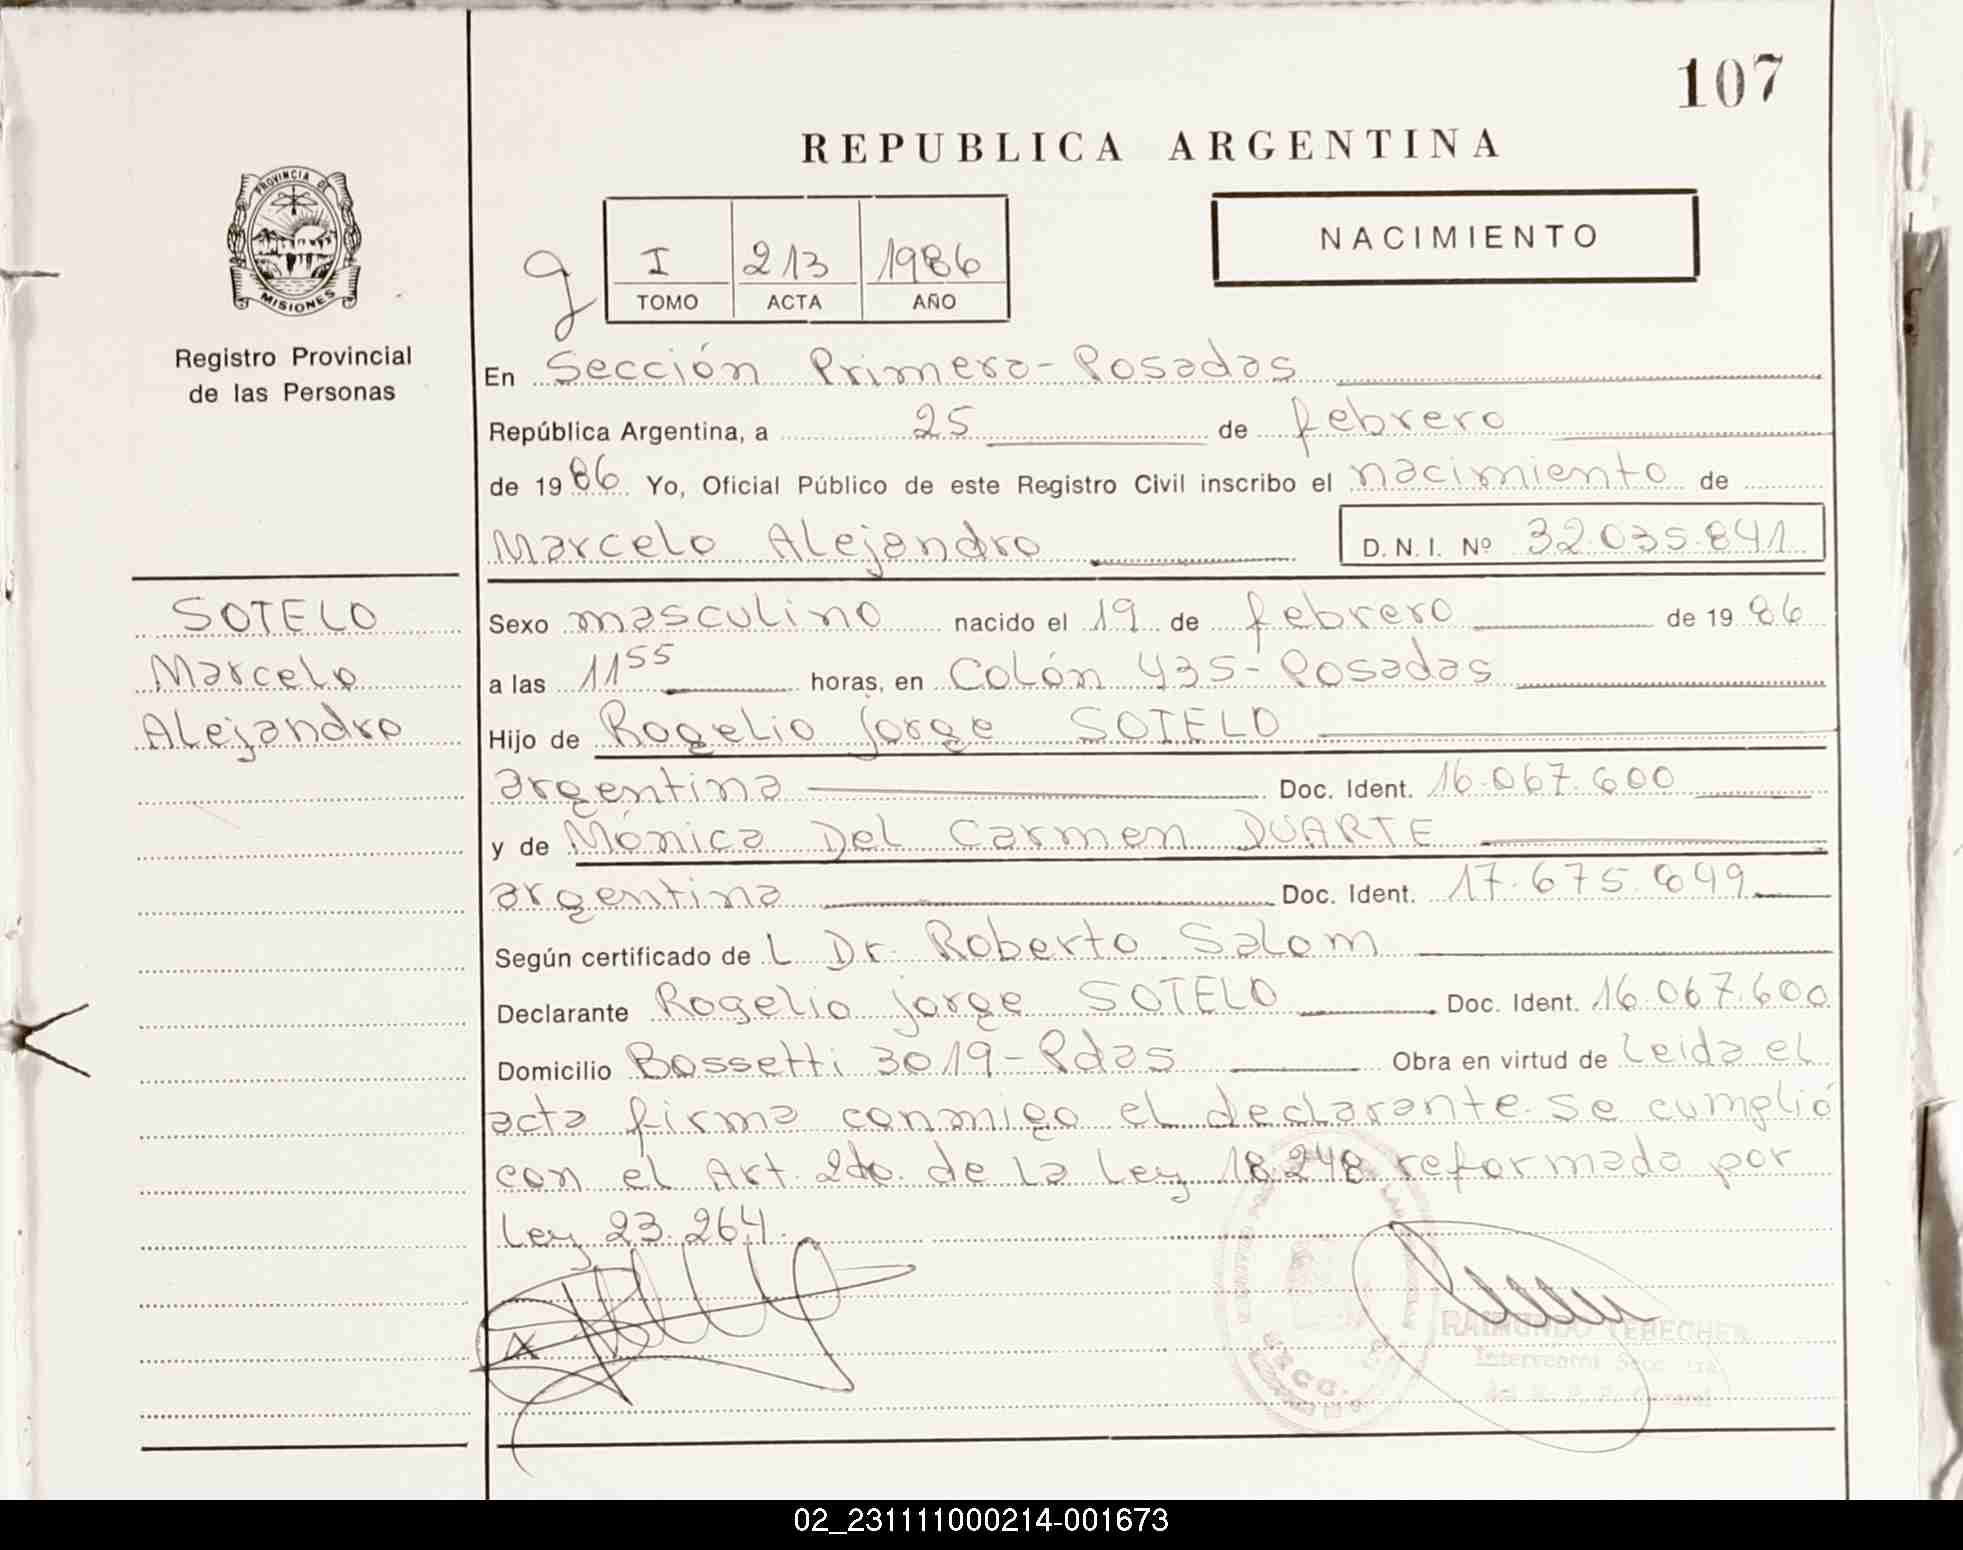 107
REPUBLICA ARGENTINA
PROVINCIA DE
MISIONES
Registro Provincial
de las Personas
I 213 1986
TOMO ACTA AÑO
NACIMIENTO
En Sección Primera - Posadas
República Argentina, a 25 de febrero
de 1986 Yo, Oficial Público de este Registro Civil inscribo el nacimiento de
Marcelo Alejandro D.N.I. Nº 32.035.841
SOTELO
Marcelo
Alejandro
Sexo masculino nacido el 19 de febrero de 1986
a las 11 55 horas, en Colón 435 - Posadas
Hijo de Rogelio Jorge SOTELO
argentina Doc. Ident. 16.067.600
y de Mónica Del Carmen DUARTE
argentina Doc. Ident. 17.675.649
Según certificado de L Dr. Roberto Salom
Declarante Rogelio Jorge SOTELO Doc. Ident. 16.067.600
Domicilio Bossetti 3019 - Pdas Obra en virtud de Leida el
acta firma conmigo el declarante. Se cumplió
con el Art. 2do. de la Ley 18.248 reformada por
Ley 23.264.
RAIMUNDO
02_231111000214-001673